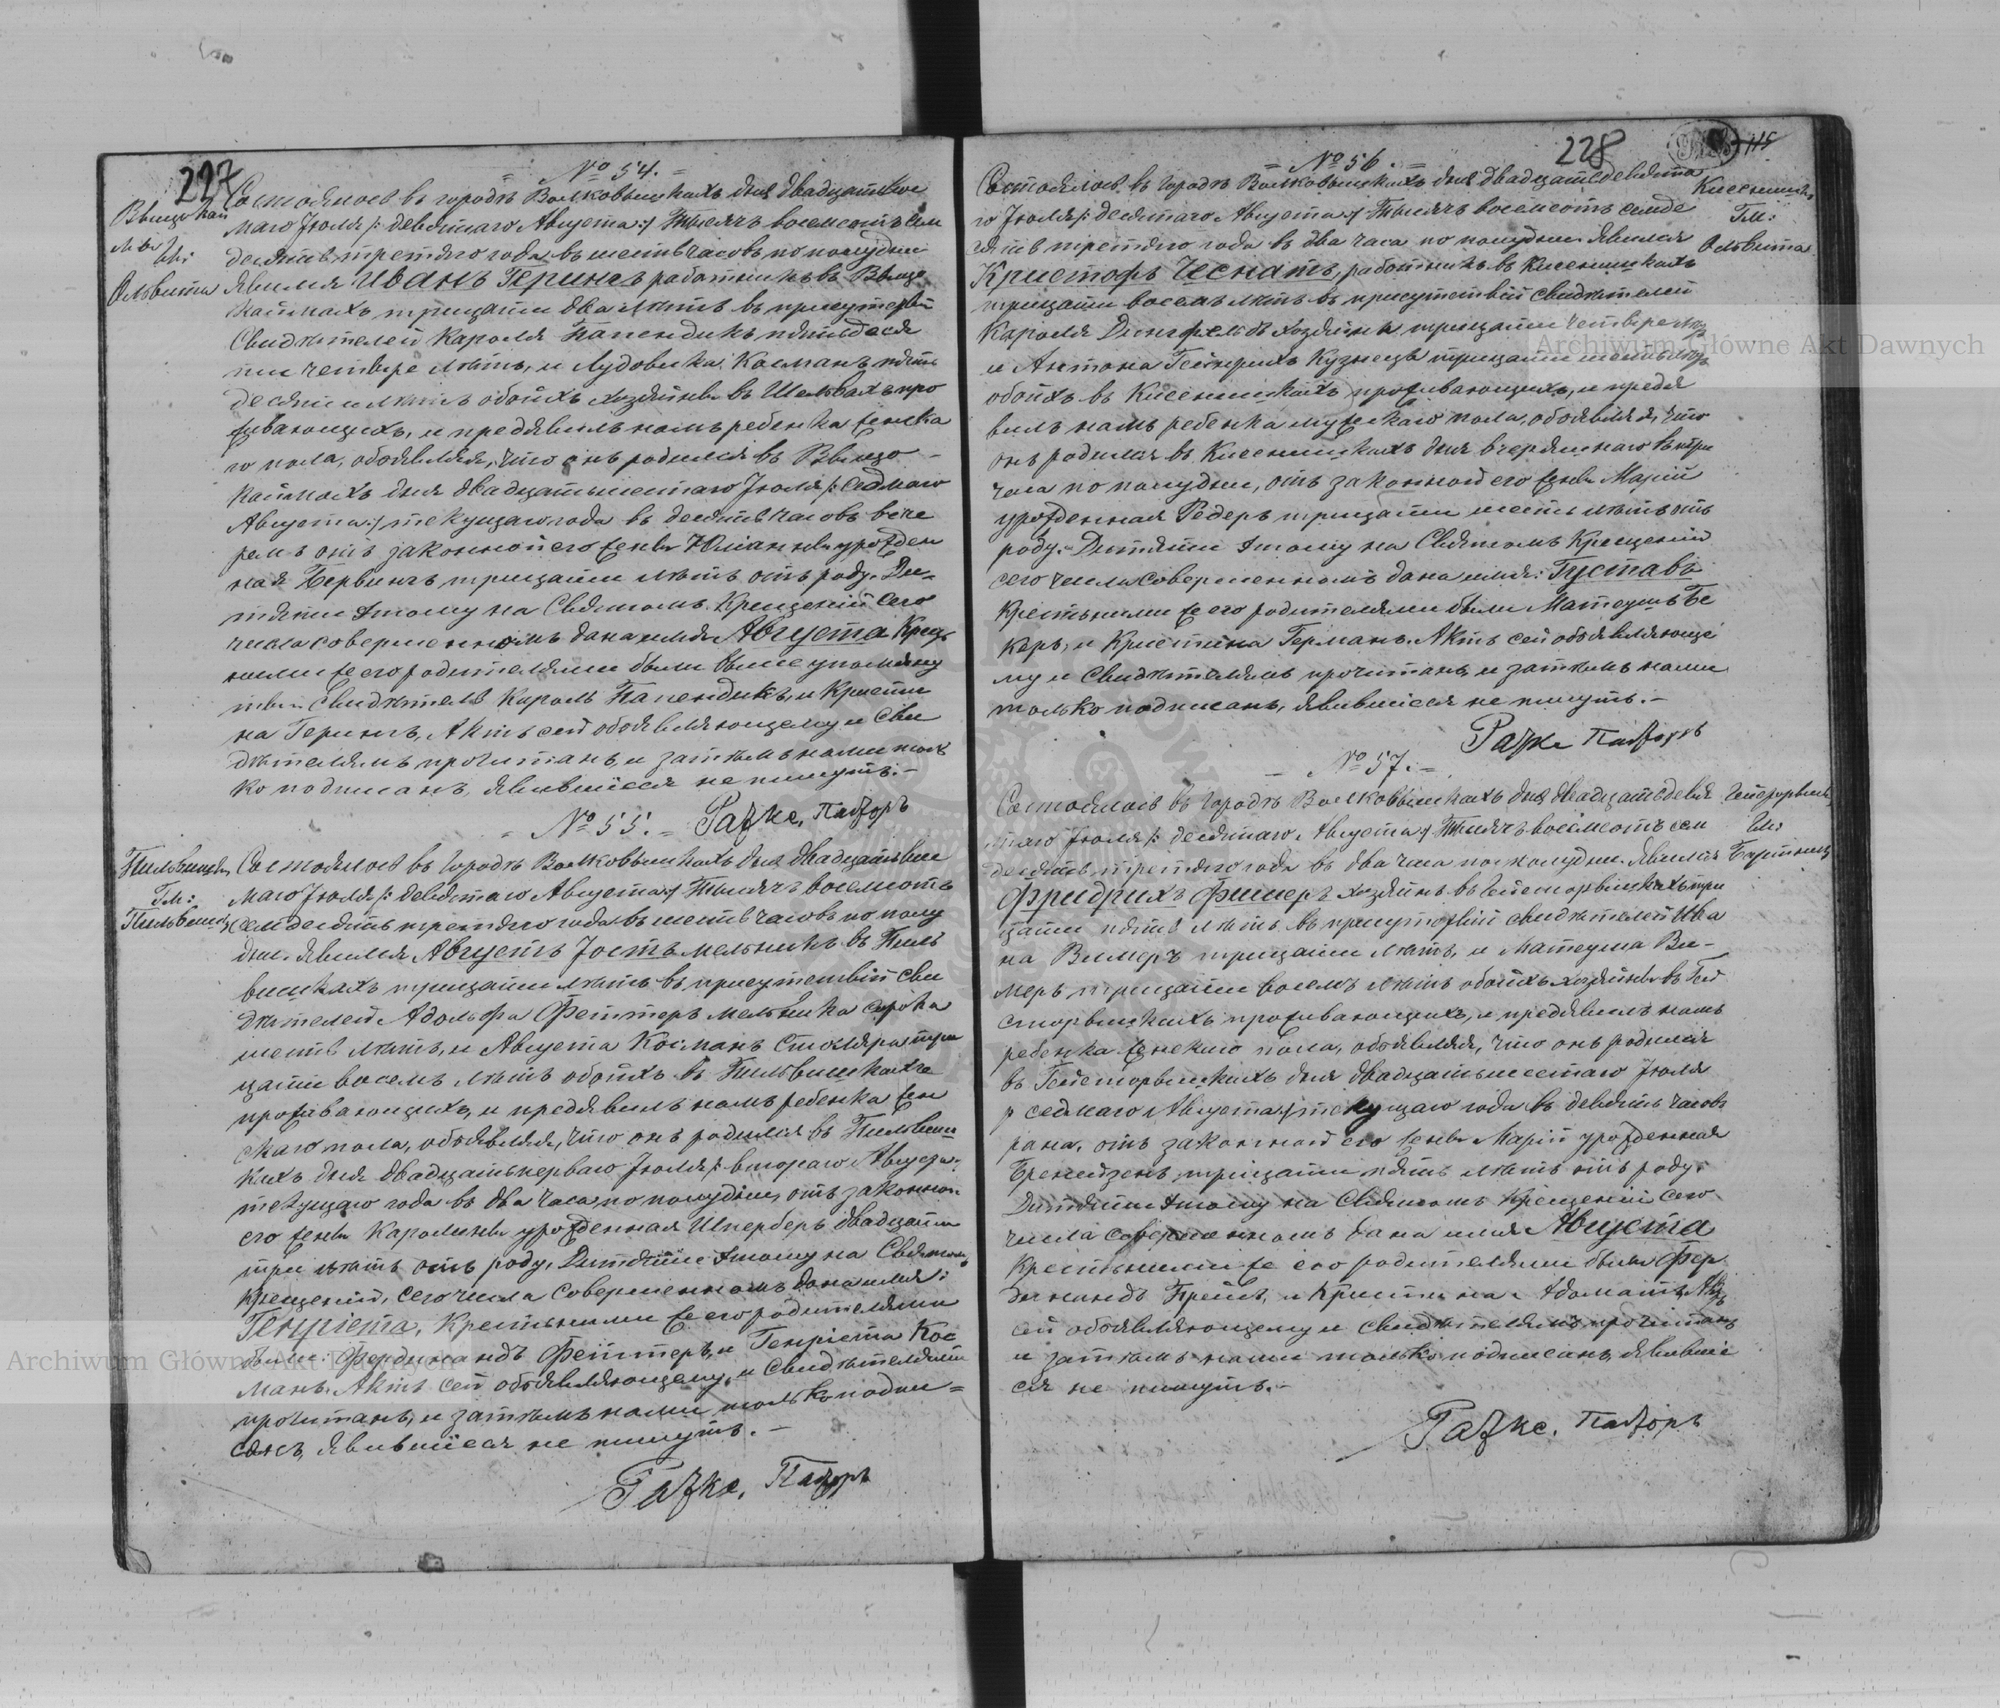 227
№ 54.
Вынцокай
мы
Гм:
Ольвита
Состоялось в городѣ Волковышкахъ дня двадцатьвось
маго Іюля /: девятаго Августа :/ Тысяча восемьсотъ сем
десятъ третяго года, въ шесть часовъ по полудни
Явился Иванъ Герингъ работникъ въ Вынцо
каймахъ тридцати два лѣтъ, въ присутствіи
Свидѣтелей Кароля Папендикъ пятьдеся
ти четыре лѣтъ, и Лудовика Косманъ пять
десяти лѣтъ обоихъ хозяйновъ въ Шельвахъ про
живающихъ, и предявилъ намъ ребенка женска
го пола, объявляя, что онъ родился въ Вынцо
каймахъ дня двадцатьшестаго Іюля /: седмаго
Августа :/ текущаго года въ десять часовъ вече
ромъ отъ законной его жены Юліанны урожден
ная Бервингъ тридцати лѣтъ отъ роду. Ди
тяти этому на Святомъ Крещеніи сего
числа совершенномъ дана имя Августа Крест
ными же его родителями были выше упомяну
тый Свидѣтель Кароль Папендикъ, и Кристи
на Герингъ, Актъ сей объявляющему и Сви
дѣтелямъ прочитанъ, и затѣмъ нами толь
ко подписанъ, явившіеся не пишутъ. –
Ражке, Пасторъ
№ 55.
Пильвишки
Гм:
Пильвишки
Состоялось въ городѣ Волковышкахъ дня двадцатьвось
маго Іюля /: девятаго Августа :/ Тысяча восемьсотъ
семдесятъ третяго года въ шесть часовъ по полу
дни. Явился Августъ Јостъ мельникъ въ Пиль
вишкахъ тридцати лѣтъ, въ присутствіи Сви
дѣтелей Адольфа Фейтеръ мельника сорока
шесть лѣтъ, и Августа Косманъ Столяра трид
цати восемь лѣтъ обоихъ въ Пильвишкахъ
проживающихъ, и предявилъ намъ ребенка жен
скаго пола, объявляя, что онъ родился въ Пильвиш
кахъ дня двадцатьперваго Іюля /: втораго Августа :/
текущаго года въ два часа по полудни, отъ законной
его жены Каролины урожденная Шперберъ двадцати
три лѣтъ отъ роду, Дитяти этому на Святомъ
Крещеніи, сего числа совершенномъ дана имя:
Генріета, Крестными же его родителями
были Фердинандъ Фейтеръ, и Генріета Кос
манъ. Актъ сей объявляющему, и Свидѣтелямъ
прочитанъ, и затѣмъ нами только подпи
санъ, явившіеся не пишутъ. –
Ражке, Пасторъ
228
115
№ 56.
Кисеништ
Гм:
Ольвита
Состоялось въ городѣ Волковышкахъ дня двадцатьдевята
го Іюля /: десятаго Августа :/ Тысяча восемьсотъ семде
сятъ третяго года въ два часа по полудни. Явился
Кристофъ Чеснатъ, работникъ въ Кисенишкахъ
тридцати восемь лѣтъ въ присутствіи свидѣтелей
Кароля Дингфельдъ хозяйна тридцати четыре лѣтъ
и Антона Гейнрихъ Кузнеца тридцати шесть лѣтъ
обоихъ въ Кисенишкахъ проживающихъ, и предя
вилъ намъ ребенка мужескаго пола, объявляя, что
онъ родился въ Кисенишкахъ дня вчеряшнаго въ три
часа по полудни, отъ законной его жены Маріи
урожденная Редеръ тридцати шесть лѣтъ отъ
роду. Дитяти этому на Святомъ Крещеніи
сего числа совершенномъ дана имя: Густавъ
Крестными же его родителями были Матеушъ Бе
керъ, и Кристина Германъ. Актъ сей объявляюще
му и Свидѣтелямъ прочитанъ, и затѣмъ нами
только подписанъ, явившіеся не пишутъ. –
Ражке Пасторъ
№ 57.
Гм:
Состоялось въ городѣ Волковышкахъ дня двадцатьдевя
таго Іюля /: десятаго Августа :/ Тысяча восемьсотъ сем
десятъ третяго года въ два часа по полудни. Явился
Фридрихъ Фишеръ хозяйнъ въ Гейсторвишкахъ трид
цати пять лѣтъ, въ присутствіи свидѣтелей Ива
на Вимеръ тридцати лѣтъ, и Матеуша Ви
меръ тридцати восемь лѣтъ обоихъ хозяйновъ въ Гей
сторвишкахъ проживающихъ, и предявилъ намъ
ребенка женскаго пола, объявляя, что онъ родился
въ Гейсторвишкахъ дня двадцатьшестаго Іюля
/: седмаго Августа :/ текущаго года въ девять часовъ
рана, отъ законной его жены Маріи урожденная
тридцати пять лѣтъ отъ роду.
Дитяти этому на Святомъ Крещеніи сего
числа совершенномъ дана имя Августа
Крестными же его родителями были Фер
динандъ Прейсъ, и Кристина Адоматъ, Актъ
сей объявляющему и Свидѣтелямъ прочитанъ
и затѣмъ нами только подписанъ, явившіе
ся не пишутъ. –
Ражке, Пасторъ
Archiwum Główne Akt Dawnych
Archiwum Główne Akt Dawnych